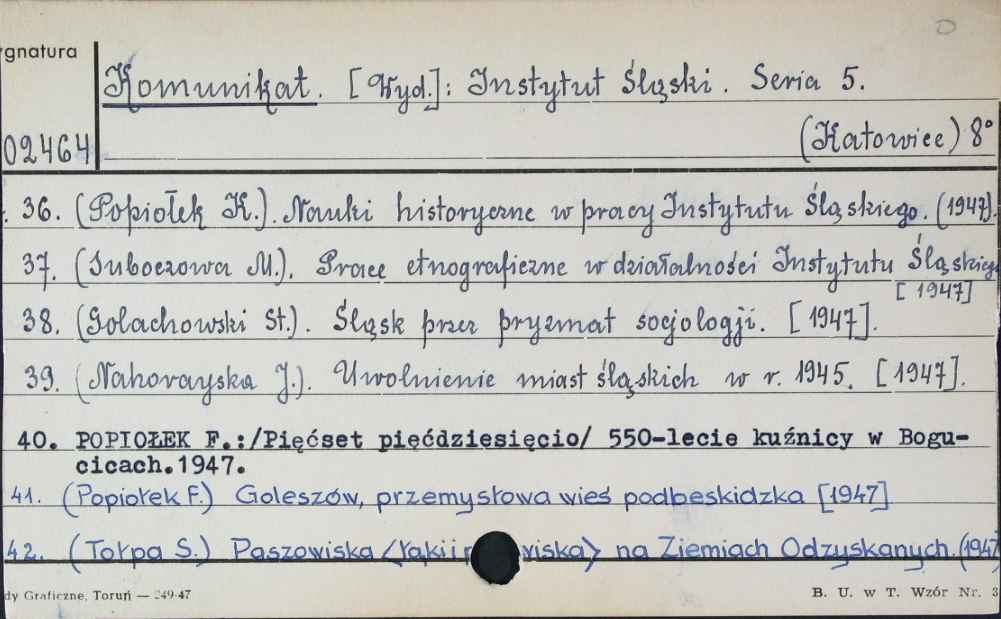 D
ygnatura
Komunikat. [Wyd.]: Instytut Śląski. Seria 5.
(Katowice) 8°
02464
36. (Popiołek K.). Nauki historyczne w pracy Instytutu Śląskiego. (1947).
37. (Suboczowa M.). Prace etnograficzne w działalności Instytutu Śląskieg
[1947]
38. (Golachowski St.). Śląsk przez pryzmat socjologji. [1947].
39. (Nahorayska J.). Uwolnienie miast śląskich w r. 1945. [1947].
40. POPIOŁEK F.:/Pięćset pięćdziesięcio/ 550-lecie kuźnicy w Bogu-
cicach.1947.
41. (Popiołek F.) Goleszów, przemysłowa wieś podbeskidzka [1947]
42. (Tołpa S.) Paszowiska (łąki i viska) na Ziemiach Odzyskanych. (1947
dy Graficzne, Toruń — 249-47
B. U. w T. Wzór Nr. 3